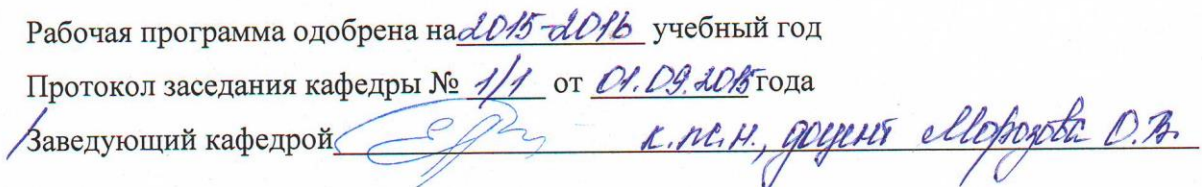 Рабочая программа одобрена на 2015-2016 учебный год
Протокол заседания кафедры № 1/1 от 01.09.2015 года
/Заведующий кафедрой к.т.н., доцент Морозова О.В.